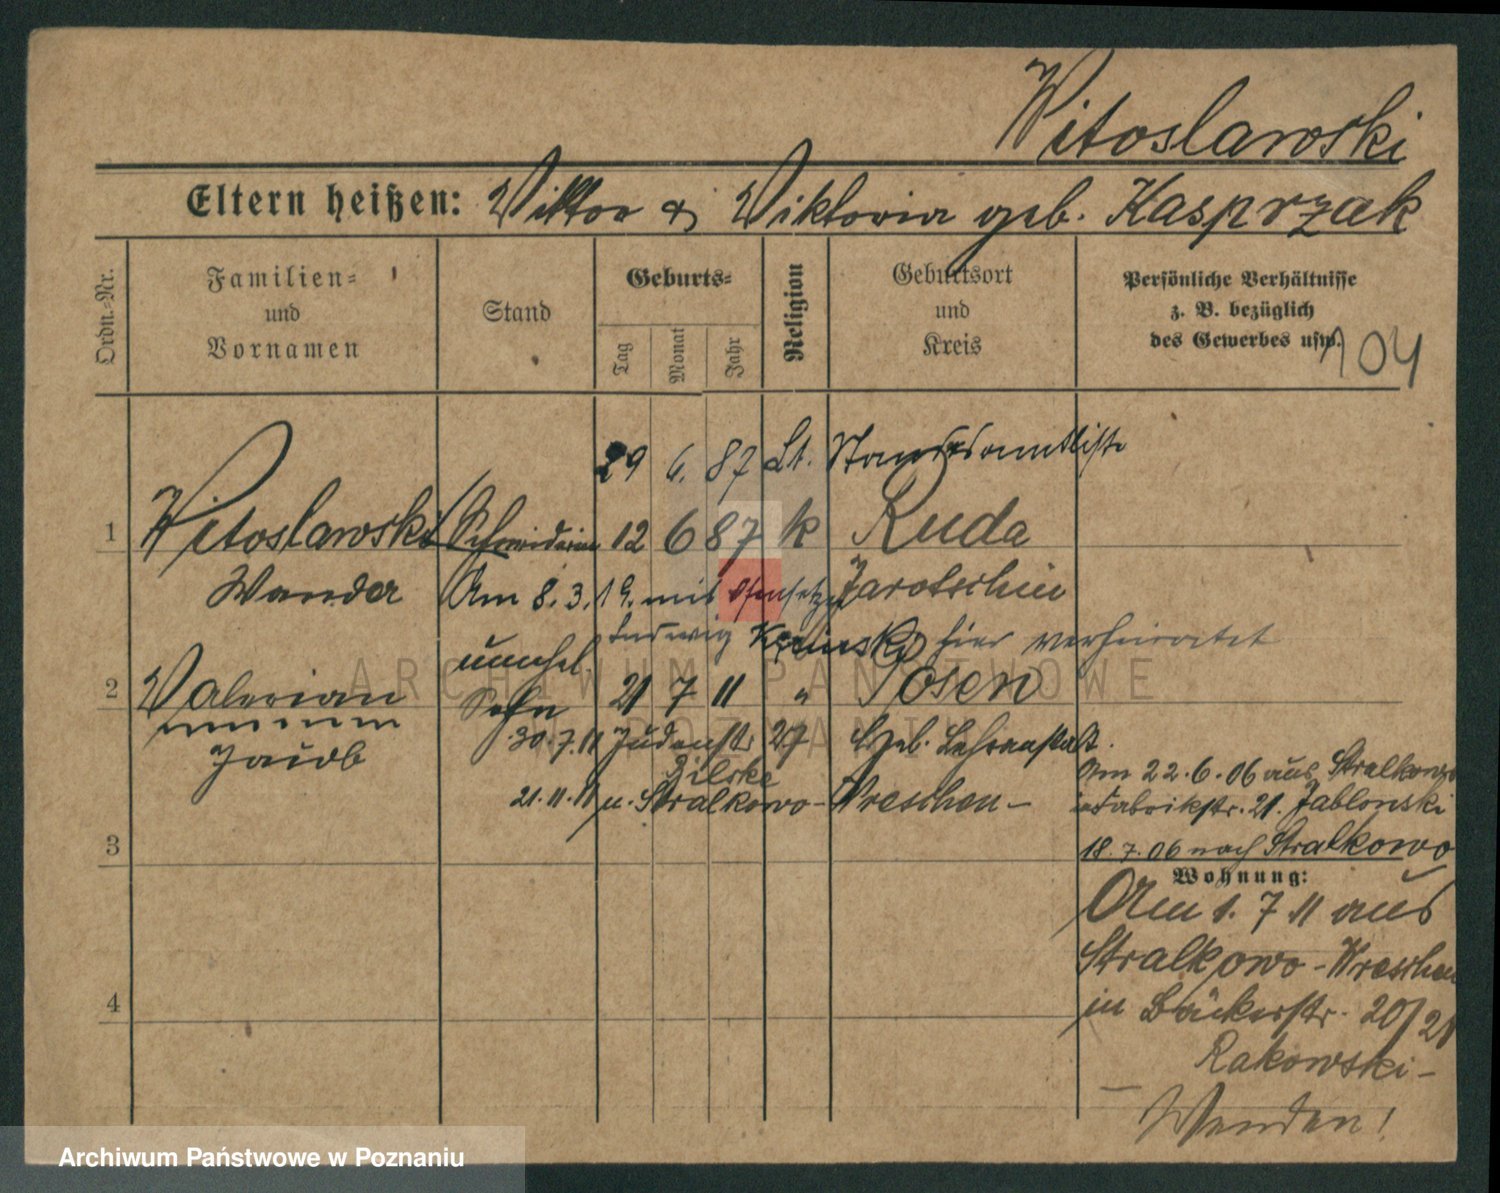 Witoslawski
Eltern heißen: Viktor & Viktoria geb. Kasprzak
Ordn.-Nr.
Familien-
und
Vornamen
Stand
Geburts-
Tag
Monat
Jahr
Religion
Geburtsort
und
Kreis
Persönliche Verhältnisse
z. B. bezüglich
des Gewerbes usw.
104
29 6. 87 Lt. Standesamtliste
1 Witoslawski Schneiderin 12 6 87 k Ruda
Wanda Am 8.3.19. mit Ofensetzer Jarotschin
Ludwig hier verheiratet
unehel.
2 Valerian Sohn 21 7 11 " Posen
Jakob 30.7.11 Judenstr 27 Geb. Lehranstalt.
21.11.11 n. Stralkowo - Wreschen -
Am 22.6.06 aus Stralkowo
in Fabrikstr. 21. Jablonski
18.7.06 nach Stralkowo
3
Wohnung:
Am 1. 7 11 aus
Stralkowo - Wreschen
in Bäckerstr. 20/21
Rakowski -
4
Wenden!
ARCHIWUM PAŃSTWOWE
W POZNANIU
Archiwum Państwowe w Poznaniu